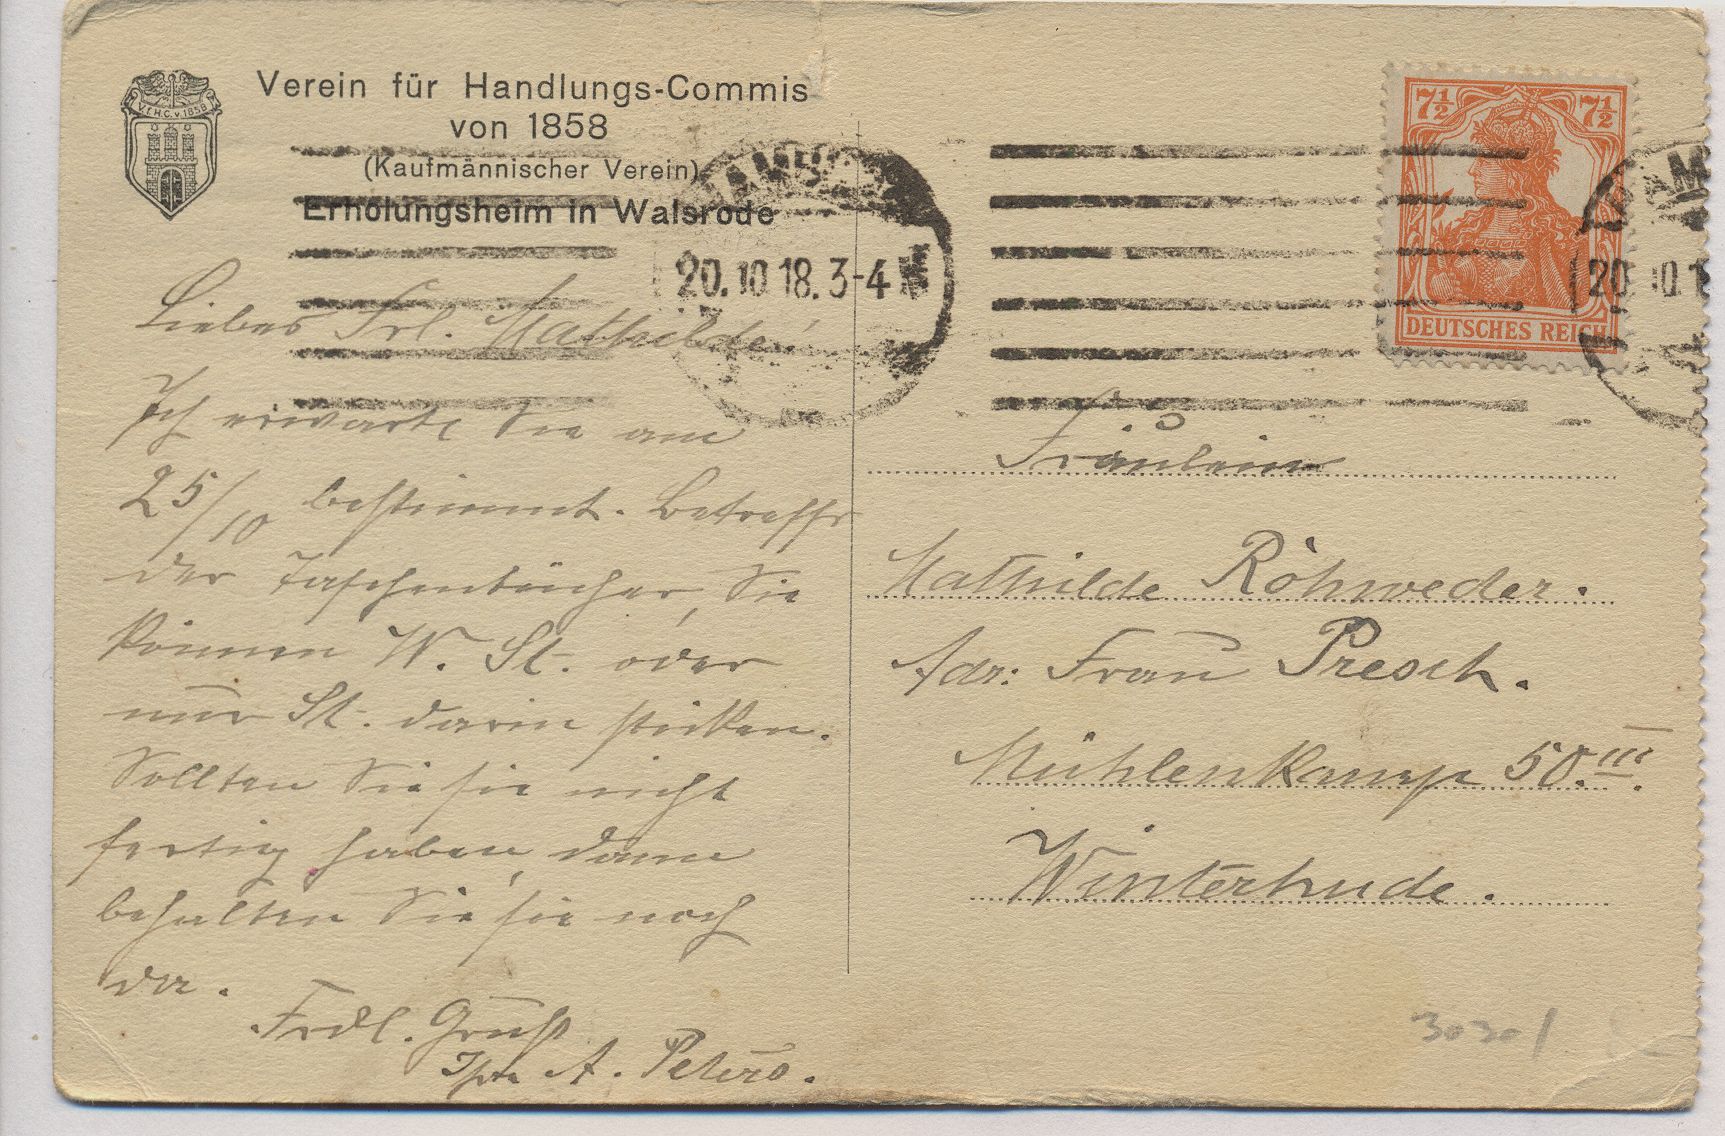 V.f.H.C.v.1858
Verein für Handlungs-Commis
von 1858
(Kaufmännischer Verein)
Erholungsheim in Walsrode
HAMBURG
20.10.18.3-4 N
7½ 7½
DEUTSCHES REICH
HAM
20.10.1
Liebes Frl. Mathilde!
Ich erwarte Sie am
25/10 bestimmt. Betreffs
der Taschentücher, Sie
können W. St. oder
nur St. darin sticken.
Sollten Sie sie nicht
fertig haben, dann
behalten Sie sie noch
da.
Frdl. Gruß
Ihre A. Peters.
Fräulein
Mathilde Röhweder.
Adr: Frau Presch.
Mühlenkamp 50.III.
Winterhude.
3030/